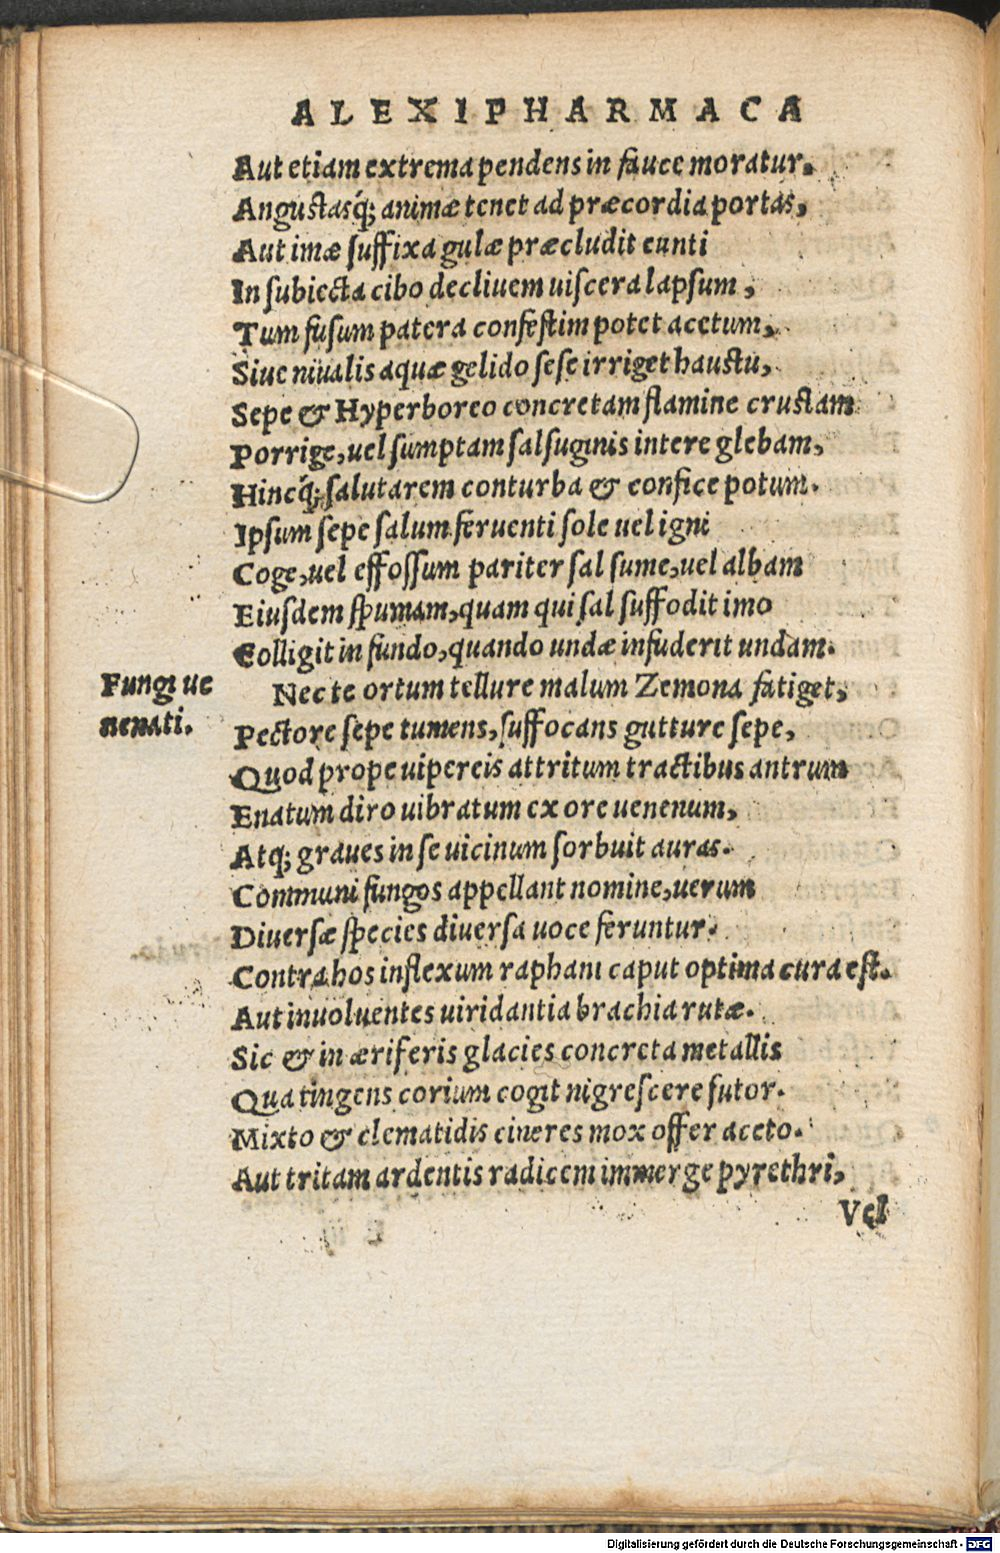 ALEXIPHARMACA
Aut etiam extrema pendens in fauce moratur.
Angustasq́; animæ tenet ad præcordia portas,
Aut imæ ſuffixa gulæ præcludit eunti
In ſubiecta cibo decliuem uiſcera lapſum,
Tum fuſum patera confeſtim potet acetum,
Siue niualis aquæ gelido ſeſe irriget hauſtu,
Sepe & Hyperboreo concretam flamine cruſtam
Porrige, uel ſumptam salſuginis intere glebam,
Hincq́; ſalutarem conturba & confice potum.
Ipſum ſepe ſalum feruenti ſole uel igni
Coge, uel effoſſum pariter ſal ſume, uel albam
Eiuſdem ſpumam, quam qui ſal ſuffodit imo
Colligit in fundo, quando undæ infuderit undam.
Fungi ue
nenati.
Nec te ortum tellure malum Zemona fatiget,
Pectore ſepe tumens, ſuffocans gutture ſepe,
Quod prope uipereis attritum tractibus antrum
Enatum diro uibratum ex ore uenenum,
Atq; graues in ſe uicinum ſorbuit auras.
Communi fungos appellant nomine, uerum
Diuerſæ ſpecies diuerſa uoce feruntur.
Contra hos inflexum raphani caput optima cura eſt.
Aut inuoluentes uiridantia brachia rutæ.
Sic & in æriferis glacies concreta metallis
Qua tingens corium cogit nigreſcere ſutor.
Mixto & clematidis cineres mox offer aceto.
Aut tritam ardentis radicem immerge pyrethri,
Vel
Digitalisierung gefördert durch die Deutsche Forschungsgemeinschaft - DFG